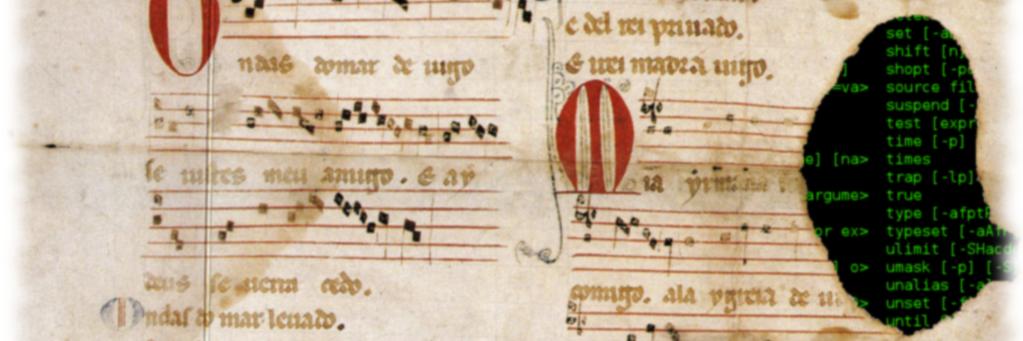 Ondas domar de uigo
se uistes meu amigo. E ay
deus se uerra cedo.
Ondas do mar leuado.
E del rei priuado.
E irei madra uigo.
Mia yrmana
comigo. ala ygreia de
set [-a
shift [n]
] shopt [-p
=va> source fil
suspend [-
test [expr
time [-p]
e] [na> times
trap [-lp]
argume> true
type [-afptP
or ex> typeset [-aA
ulimit [-SHacd
] o> umask [-p] [-S
unalias [-a
> unset [-f
until